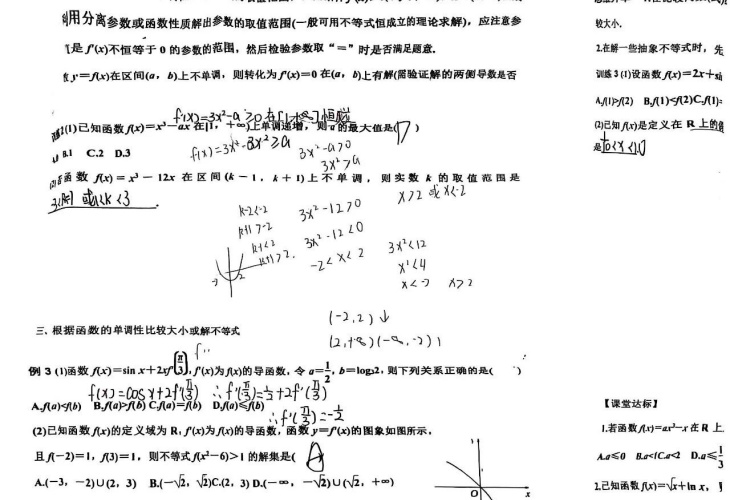 利用分离参数或函数性质解出参数的取值范围(一般可用不等式恒成立的理论求解)，应注意参
是 f′(x)不恒等于 0 的参数的范围，然后检验参数取“＝”时是否满足题意.
y＝f(x)在区间(a，b)上不单调，则转化为 f′(x)＝0 在(a，b)上有解(需验证解的两侧导数是否
f'(x)=3x²-a≥0在[1,+∞)恒成立
(1)已知函数 f(x)＝x³－ax 在[1，＋∞)上单调递增，则 a 的最大值是( )
B.1 C.2 D.3
3x²≥a
3x²-a≥0
3x²≥a
函数 f(x)＝x³－12x 在区间(k－1，k＋1)上不单调，则实数 k 的取值范围是
或1<k<3
x>2 或 x<-2
k+1>-2
k+1>2
3x²-12>0
3x²-12<0
-2<x<2
3x²<12
x²<4
x>2
(-2,2)↓
三、根据函数的单调性比较大小或解不等式
例 3 (1)函数 f(x)＝sin x＋2xf′(π/3)，f′(x)为 f(x)的导函数，令 a＝1/2，b＝log₃2，则下列关系正确的是( )
f(x)=cosx+2f'(π/3) ∴f'(π/3)=1/2+2f'(π/3)
A.f(a)<f(b) B.f(a)>f(b) C.f(a)＝f(b) D.f(a)≤f(b)
∴f'(π/3)=-1/2
(2)已知函数 f(x)的定义域为 R，f′(x)为 f(x)的导函数，函数 y＝f′(x)的图象如图所示，
且 f(－2)＝1，f(3)＝1，则不等式 f(x²－6)>1 的解集是( A
A.(－3，－2)∪(2，3) B.(－√2，√2) C.(2，3) D.(－∞，－√2)∪(√2，＋∞)
O
较大小.
2.在解一些抽象不等式时，先
训练 3 (1)设函数 f(x)＝2x＋si
A.f(1)>f(2) B.f(1)<f(2) C.f(1)＝
(2)已知 f(x)是定义在 R 上的
是
【课堂达标】
1.若函数 f(x)＝ax³－x 在 R 上
A.a≤0 B.a<1 C.a<2 D.a≤1/3
2.已知函数 f(x)＝√x＋ln x，